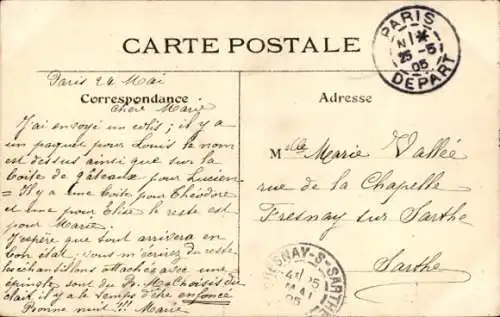 CARTE POSTALE
PARIS
25 -5
05
DEPART
Paris 24 Mai
Correspondance
Adresse
Chère Marie
J'ai envoyé un colis ; il y a
un paquet pour Louis le nom
est dessus ainsi que sur la
boîte de gâteaux pour Lucien
Il y a une boîte pour Théodore
et une pour Elise le reste est
pour Marie.
J'espère que tout arrivera en
bon état ; vous m'écrirez du reste
les échantillons attachés avec une
épingle sont du Bn M Choisis du
clair il y a le temps d'être enfoncé
Bonne nuit !!! Marie
Melle Marie Vallée
rue de la Chapelle
Fresnay sur Sarthe
Sarthe
FRESNAY-S-SARTHE
MAI
05